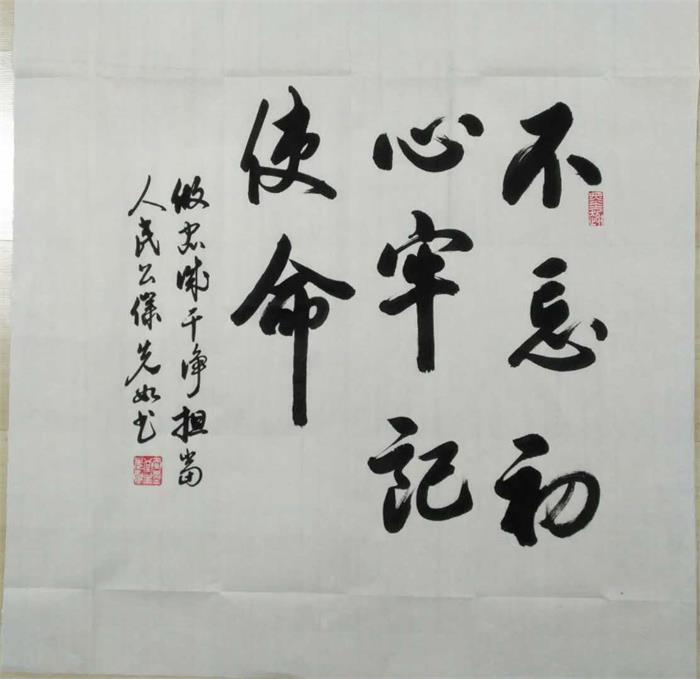 不忘初
心牢记
使命
做忠诚干净担当
人民公仆先如书